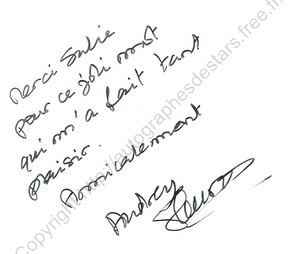 Merci Sylvie
pour ce joli mot
qui m'a fait tant
plaisir.
Amicalement
Audrey
Copyright http://autographesdestars.free.fr